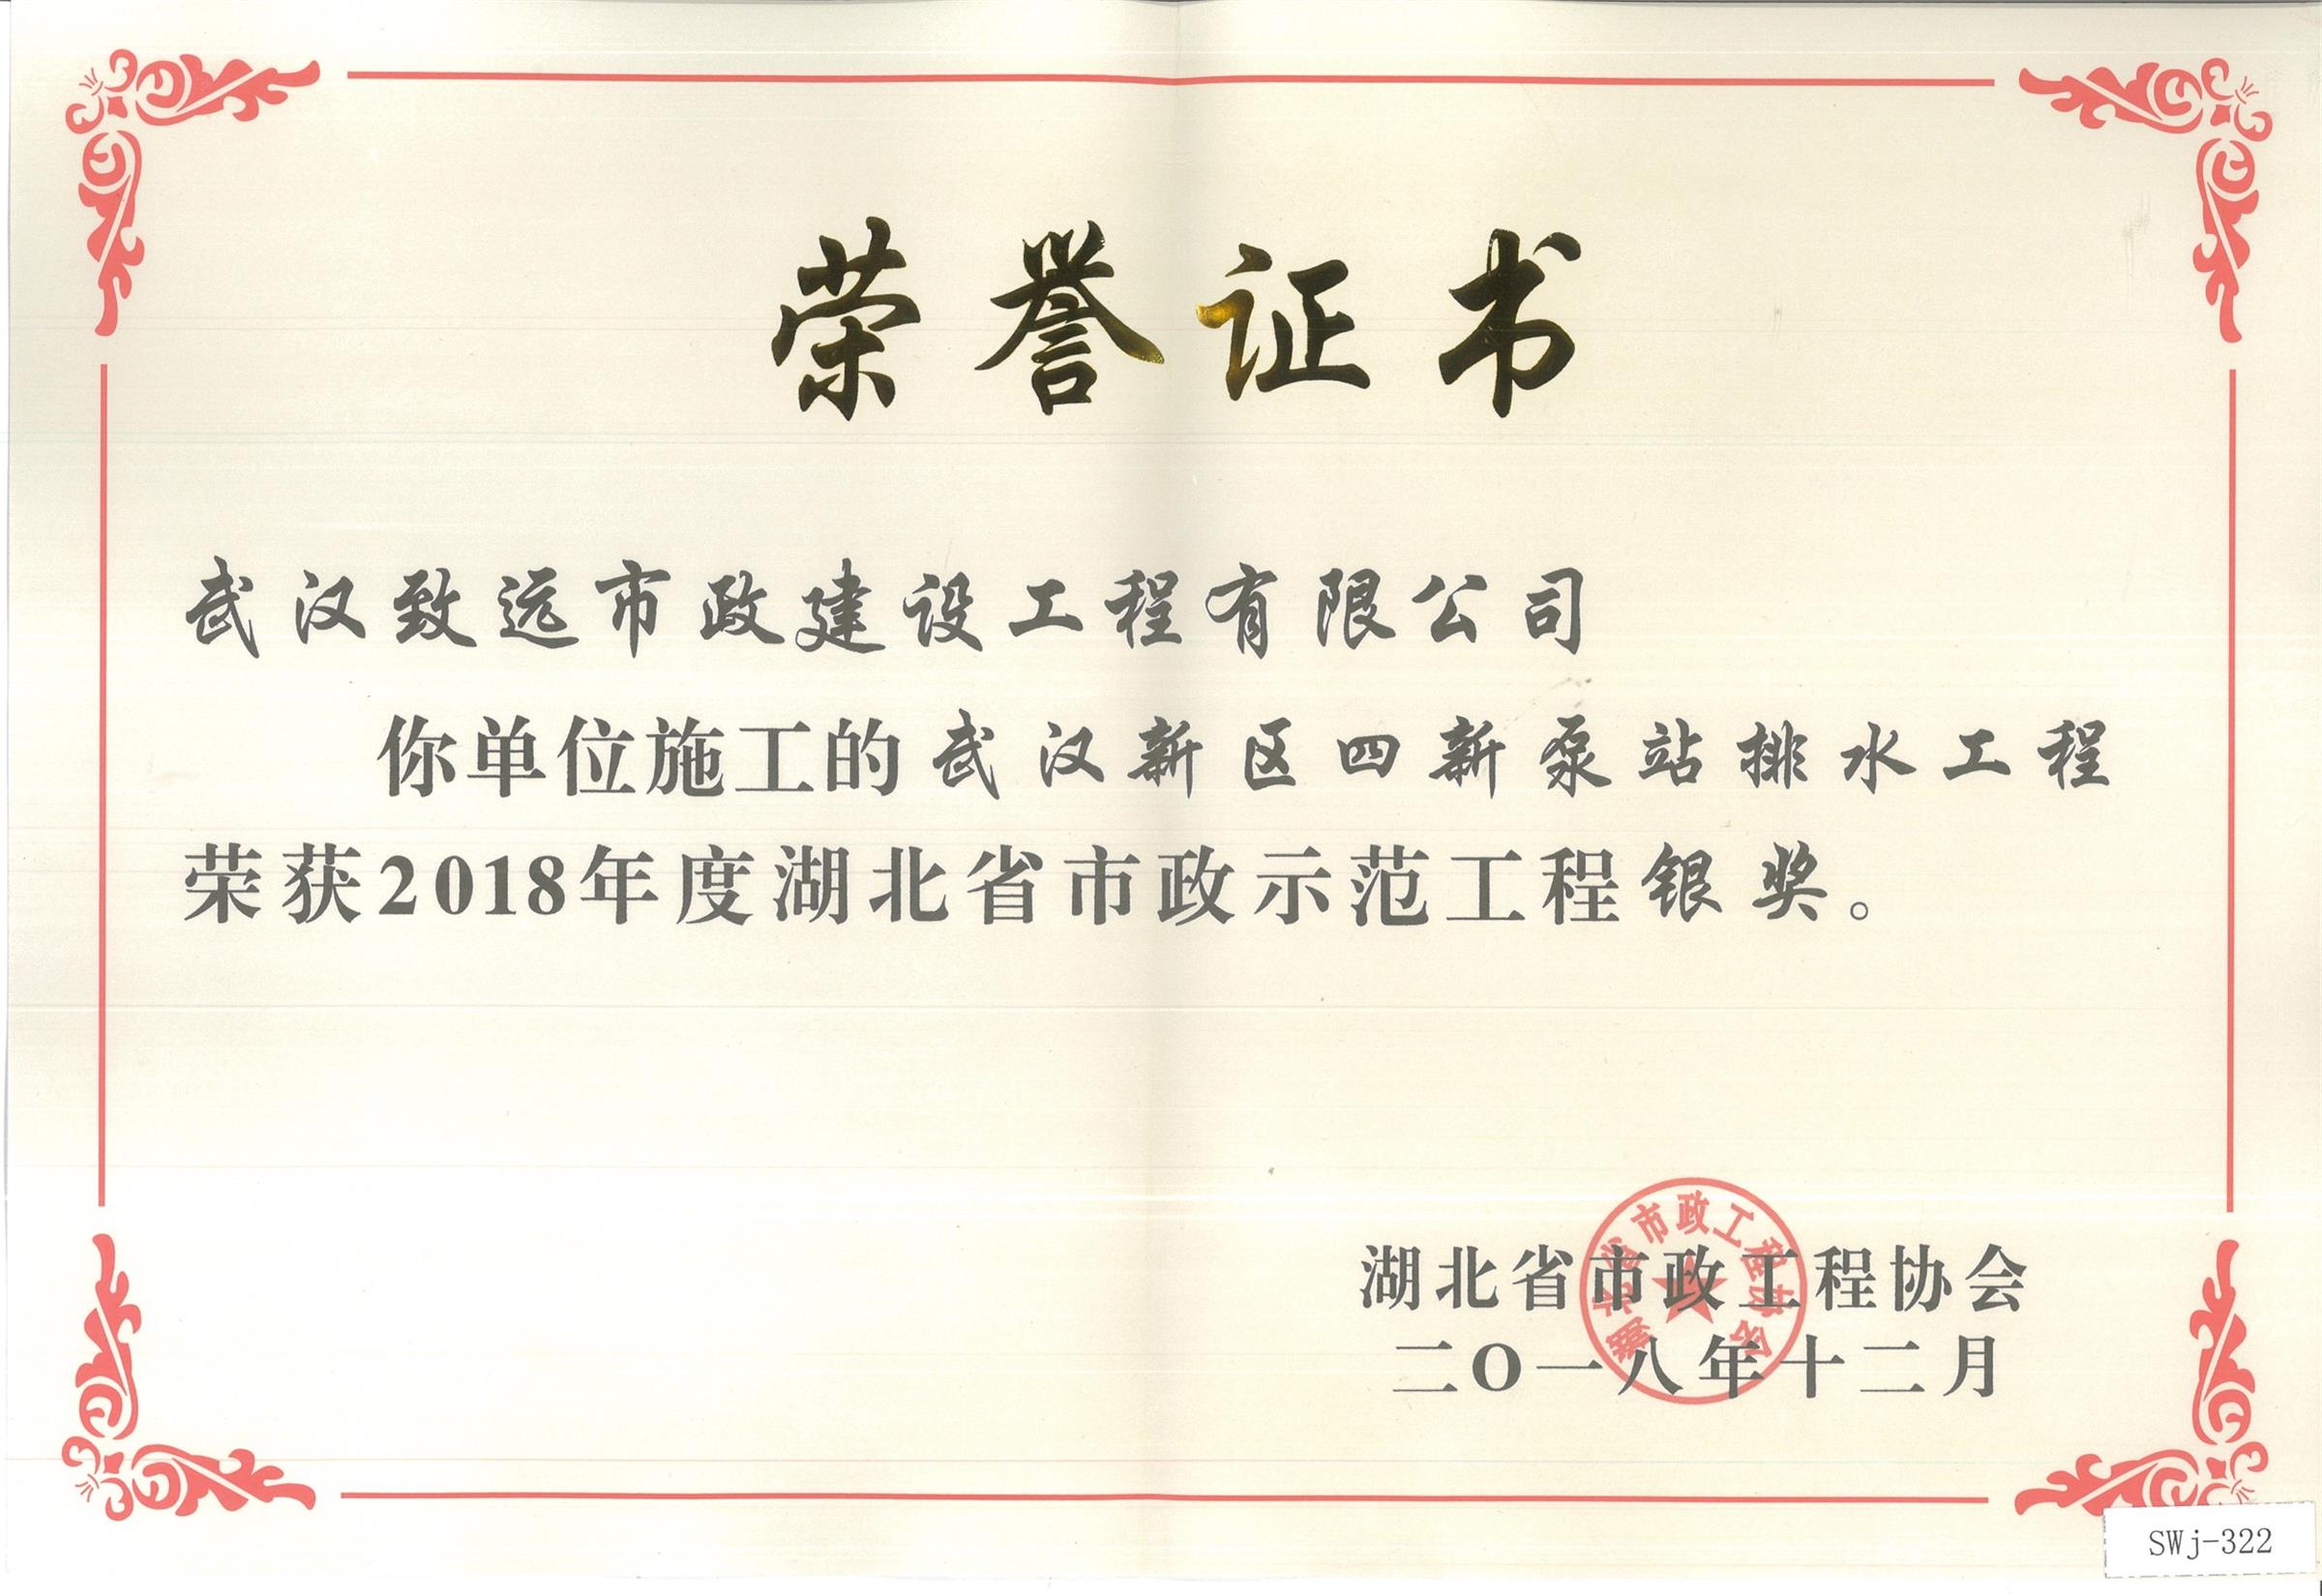 荣誉证书
武汉致远市政建设工程有限公司
你单位施工的武汉新区四新泵站排水工程
荣获2018年度湖北省市政示范工程银奖。
湖北省市政工程协会
湖北省市政工程协会
二O一八年十二月
SWj-322